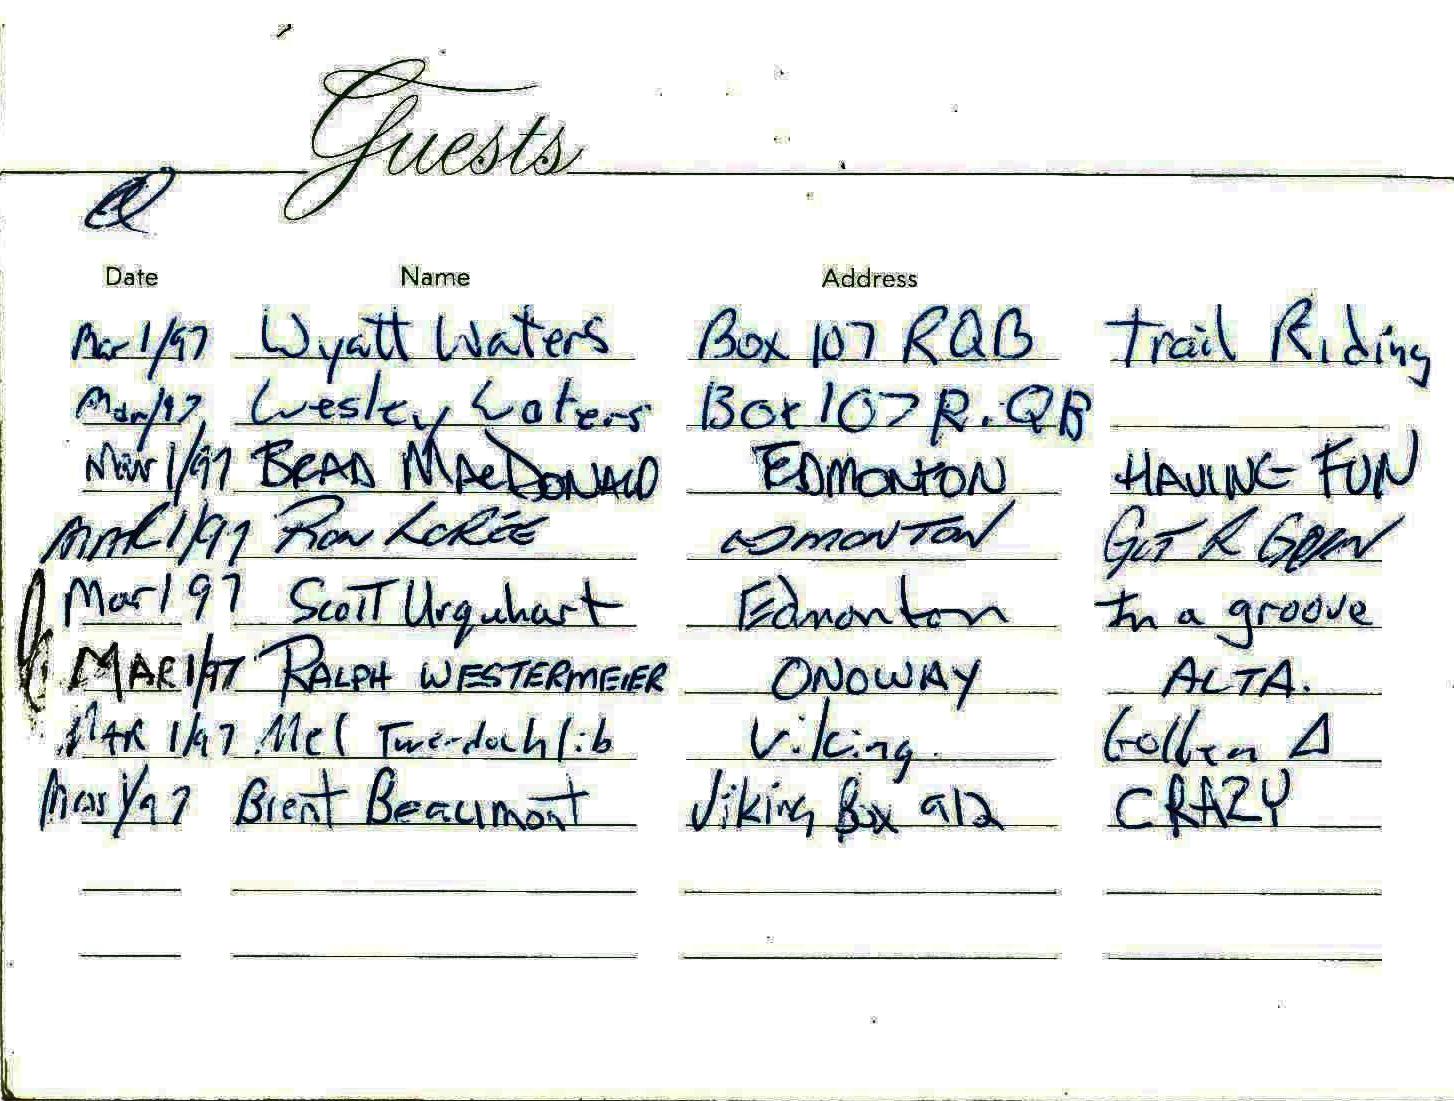 Guests
Date Name Address
Mar 1/97 Wyatt Waters Box 107 RQB Trail Riding
Mar/97 Wesley Waters Box 107 R.QB
Mar 1/97 BRAD MACDONALD EDMONTON HAVING FUN
MAR 1/97 RON LORÉE EDMONTON GIT R
Mar 1 97 Scott Urquhart Edmonton In a groove
MAR 1/97 RALPH WESTERMEIER ONOWAY ALTA.
MAR 1/97 Mel Twerdochlib Viking.
Mar 1/97 Brent Beaumont Viking Box 912 CRAZY